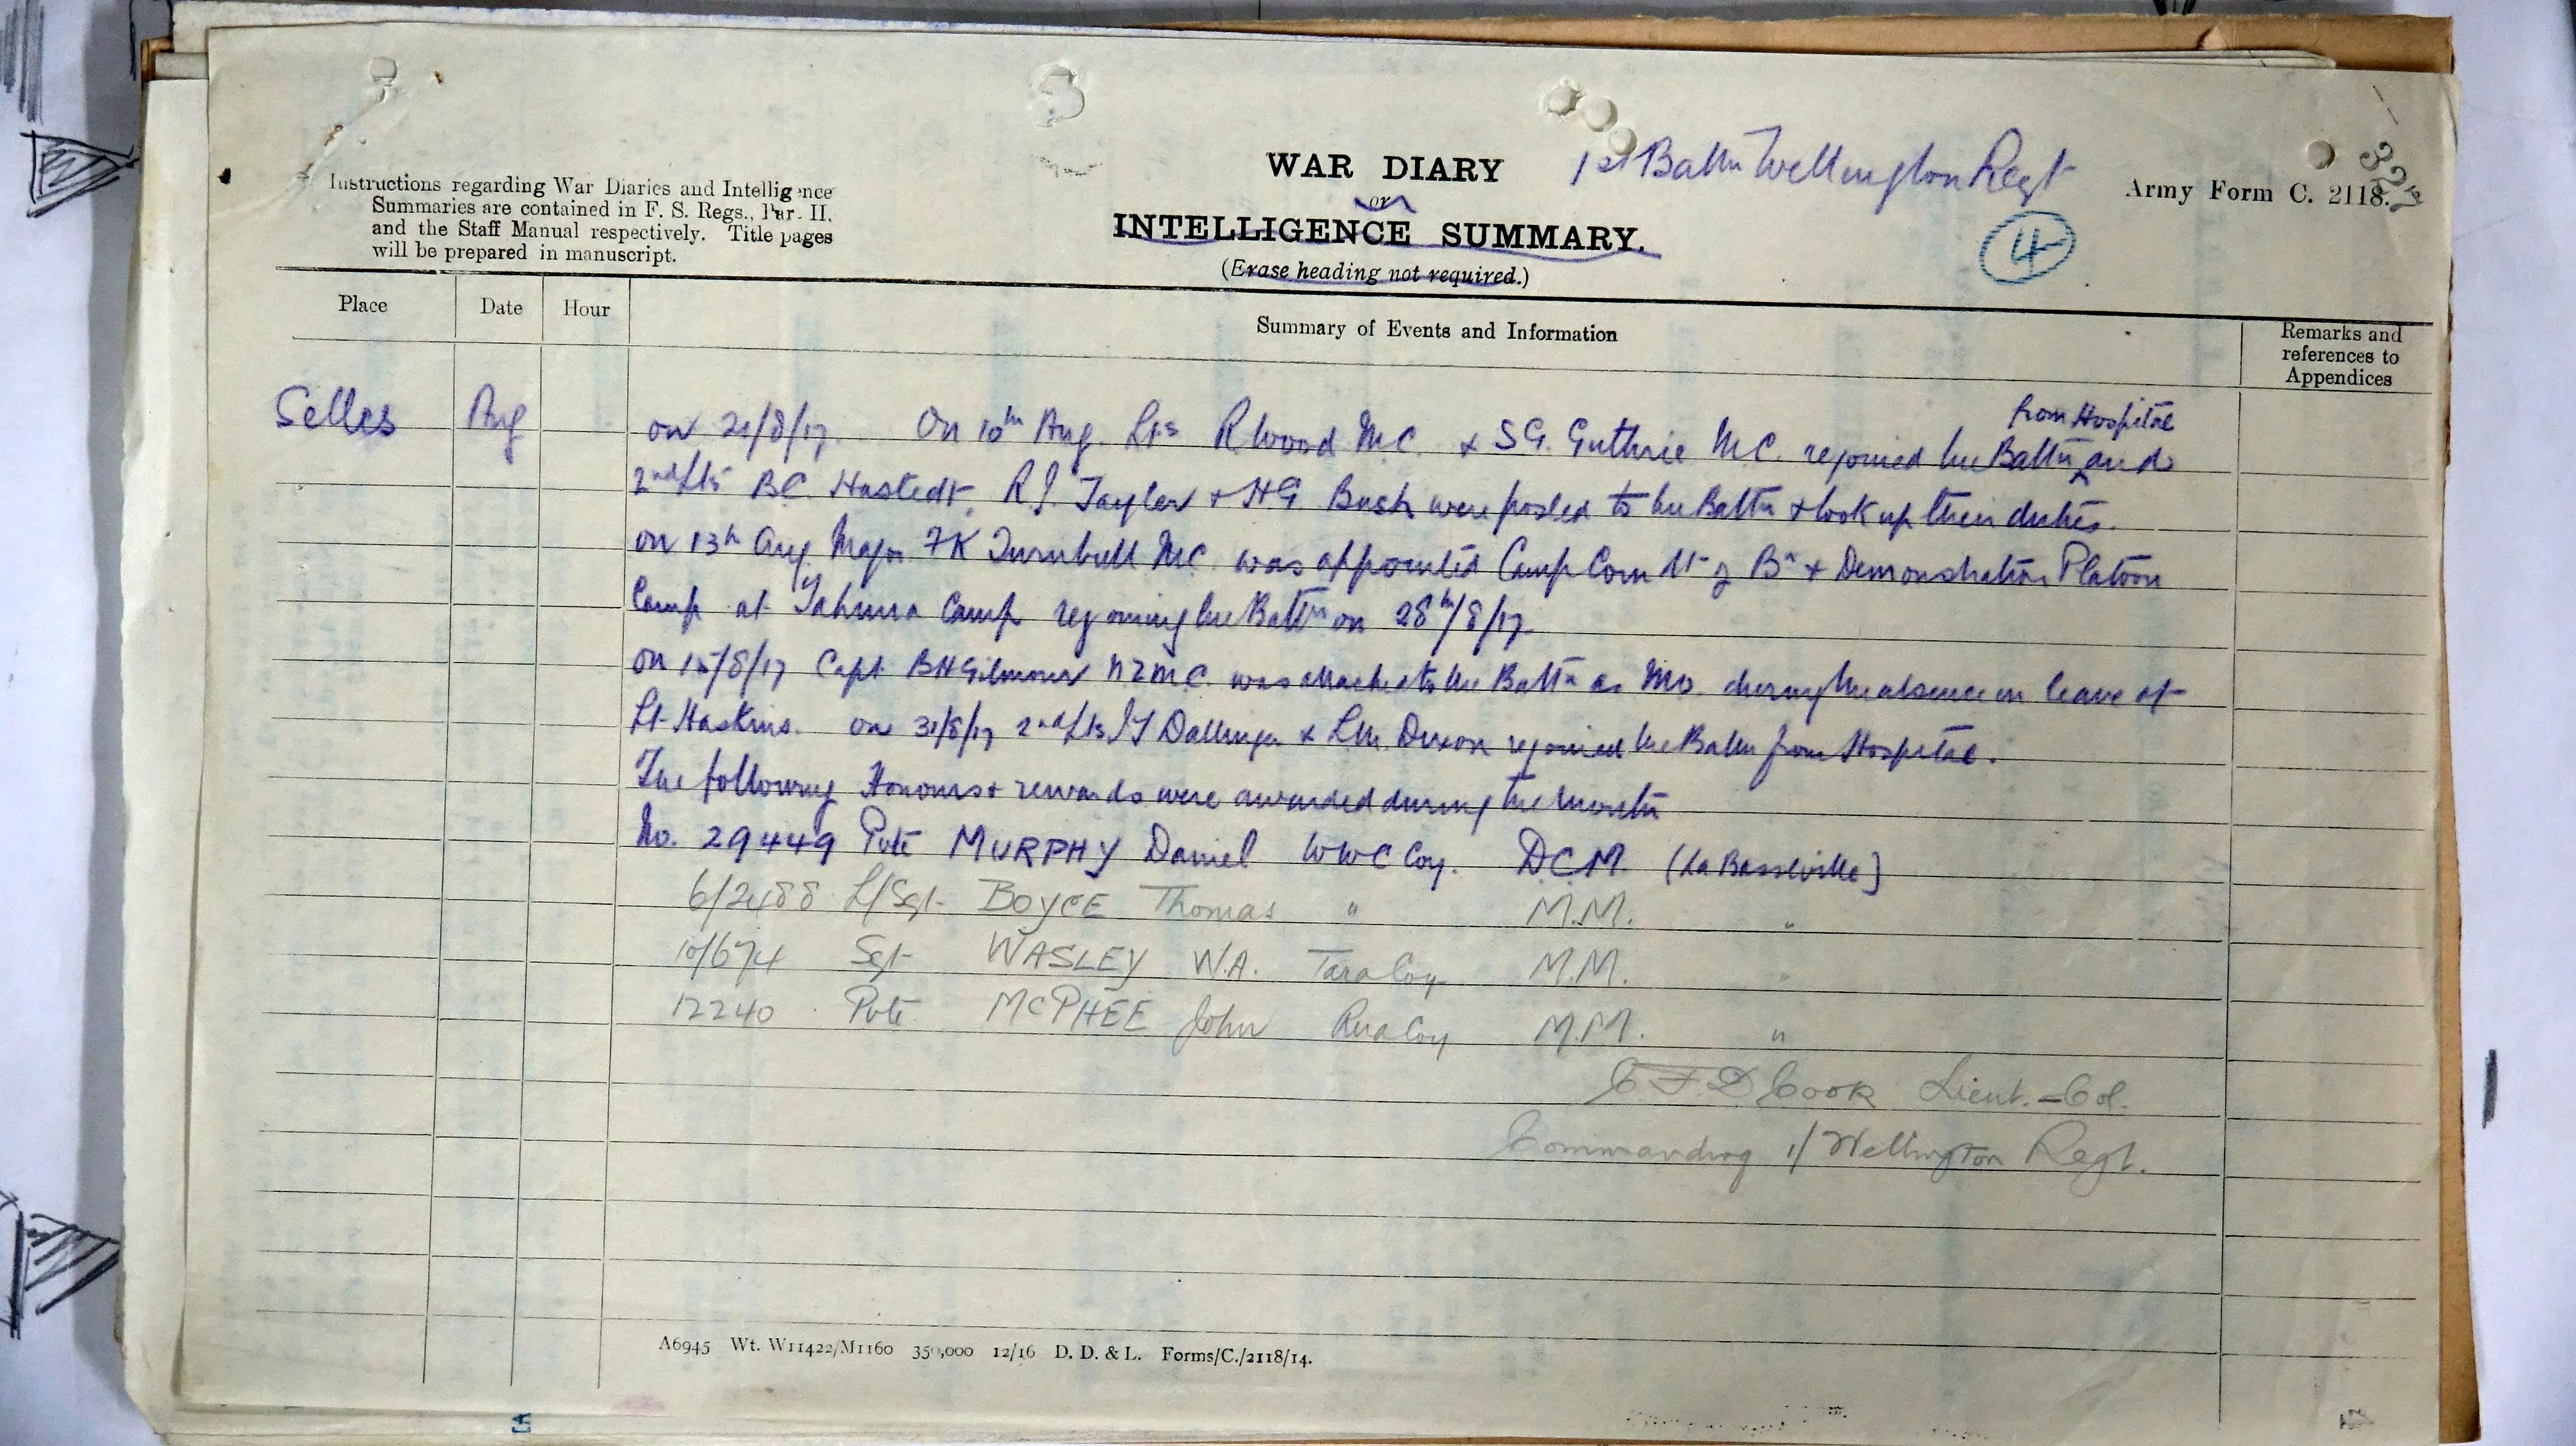 Instructions regarding War Diaries and Intelligence
Summaries are contained in F. S. Regs., Par. II.
and the Staff Manual respectively. Title pages
will be prepared in manuscript.
WAR DIARY
or
INTELLIGENCE SUMMARY.
(Erase heading not required.)
1st Battn Wellington Regt
4
Army Form C. 2118.
Place
Date
Hour
Summary of Events and Information
Remarks and
references to
Appendices
Selles
Aug
from Hospital
on 21/8/17. On 10th Aug. Lts R Wood M.C. & S.G. Guthrie M.C. rejoined the Battn and
2nd/Lts B.C. Hastedt, R.J. Taylor & H.G Bush were posted to the Battn & took up their duties.
on 13th Aug. Major FK Turnbull MC. was appointed Camp Comdt of Bn & Demonstration Platoon
Camp at Camp rejoining the Battn on 28th/8/17.
on 15/8/17 Capt BH Gilmour NZMC. was attached to the Battn as MO. during the absence on leave of
Lt Haskins. on 31/8/17 2nd/Lts Dallinger & L.M. Dixon rejoined the Battn from Hospital.
The following Honours & rewards were awarded during the month
No. 29449 Pvte MURPHY Daniel WWC Coy. D.C.M. (La Basseville)
6/2488 L/Sgt BOYCE Thomas " M.M. "
10/674 Sgt WASLEY W.A. Tara Coy M.M. "
12240 Pvte MCPHEE John Rua Coy M.M. "
C F D Cook Lieut.-Col.
Commanding 1/ Wellington Regt.
A6945 Wt. W11422/M1160 350,000 12/16 D. D. & L. Forms/C./2118/14.